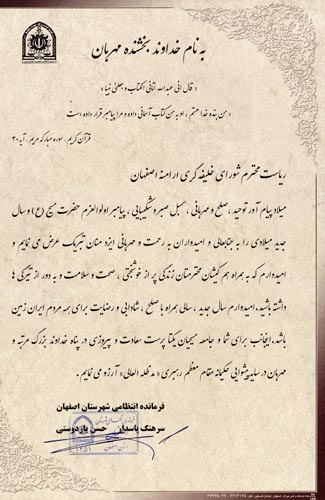 به نام خداوند بخشنده مهربان
« قال انی عبدالله آتانی الکتاب و جعلنی نبیا »
«من بنده خدا هستم ، او به من کتاب آسمانی داده و مرا پیامبر قرار داده است
قرآن کریم . سوره مبارکه مریم . آیه ۳۰
ریاست محترم شورای خلیفه گری ارامنه اصفهان
میلاد پیام آور توحید ، صلح و مهربانی ، سمبل صبر و شکیبایی ، پیامبر اولوالعزم حضرت مسیح (ع) و سال
جدید میلادی را به جنابعالی و امیدواران به رحمت و مهربانی ایزد منان تبریک عرض می نمایم و
امیدوارم که به همراه هم کیشان محترمتان زندگی پر از خوشبختی ، صحت و سلامت و به دور از تیرگی ها
داشته باشید. امیدوارم سال جدید ، سالی همراه با صلح ، شادابی و رضایت برای همه مردم ایران زمین
باشد. اینجانب برای شما و جامعه مسیحیان یکتا پرست سعادت و پیروزی در پناه خداوند بزرگ مرتبه و
مهربان در سایه پیشوایی حکیمانه مقام معظم رهبری «مدظله العالی» آرزو می نمایم .
فرمانده انتظامی شهرستان اصفهان
سرهنگ پاسدار حسن یاردوستی